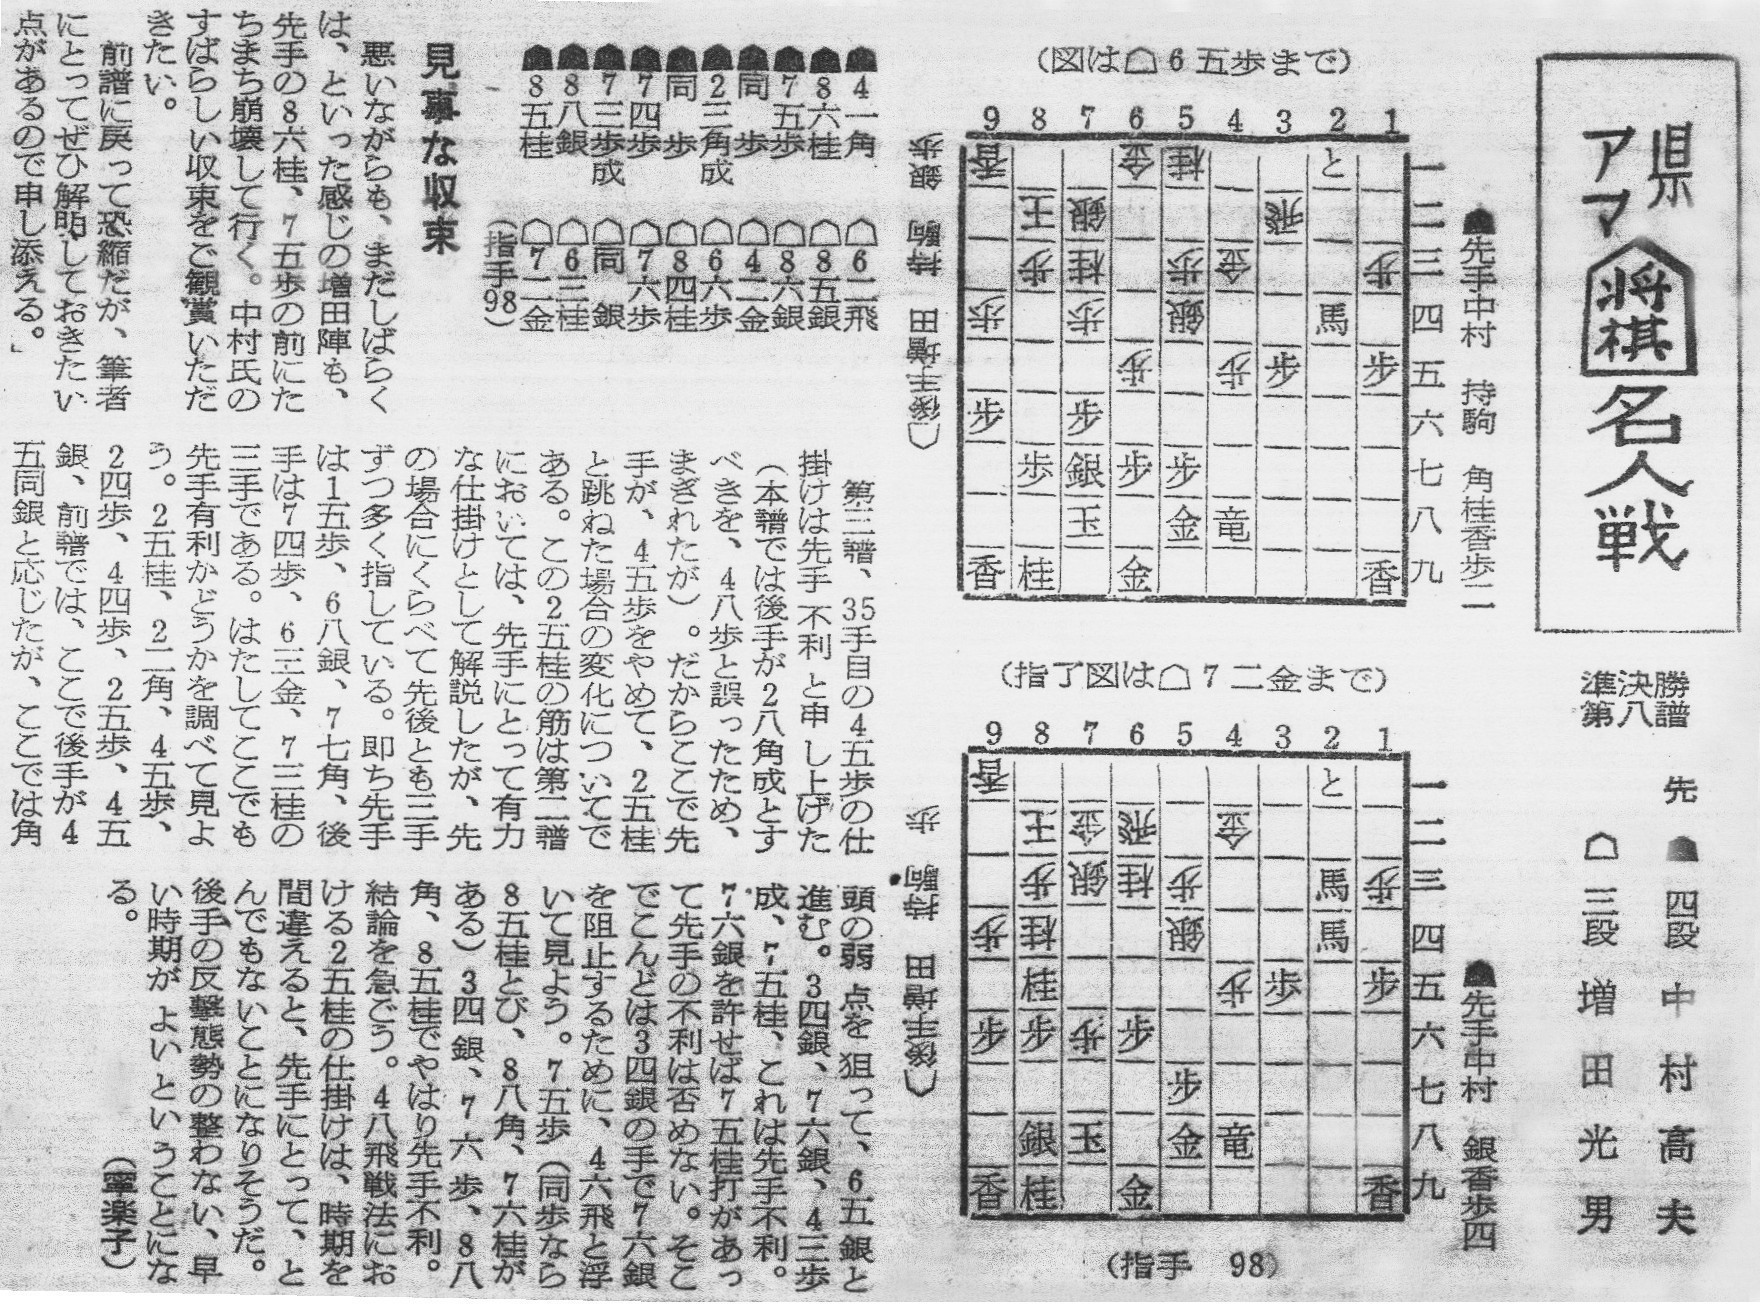 県
アマ将棋名人戦
準決勝
第八譜
先 ☗四段 中村高夫
☖三段 増田光男
(図は☖6五歩まで)
9 8 7 6 5 4 3 2 1
香 金 桂 と 一
王 銀 飛 二
歩 桂 歩 金 歩 三
歩 歩 銀 馬 四
歩 歩 歩 歩 五
歩 歩 六
歩 銀 歩 歩 七
玉 金 竜 八
香 桂 金 香 九
☗先手中村 持駒 角桂香歩二
☖後手増田 持駒 銀歩
(指了図は☖7二金まで)
9 8 7 6 5 4 3 2 1
香 と 一
王 金 飛 金 二
歩 銀 桂 歩 馬 歩 三
歩 桂 銀 馬 四
桂 歩 歩 歩 五
歩 歩 歩 歩 六
歩 七
銀 玉 金 竜 八
香 桂 金 香 九
☗先手中村 銀香歩四
☖後手増田 持駒 歩
(指手 98)
☗4一角 ☖6二飛
☗8六桂 ☖8五銀
☗7五歩 ☖8六銀
☗同 歩 ☖4二金
☗2三角成 ☖6六歩
☗同 歩 ☖8四桂
☗7四歩 ☖7六歩
☗7三歩成 ☖同 銀
☗8八銀 ☖6三桂
☗8五桂 ☖7二金
(指手98)
見事な収束
悪いながらも、まだしばらく
は、といった感じの増田陣も、
先手の8六桂、7五歩の前にた
ちまち崩壊して行く。中村氏の
すばらしい収束をご観賞いただ
きたい。
前譜に戻って恐縮だが、筆者
にとってぜひ解明しておきたい
点があるので申し添える。」
第三譜、35手目の4五歩の仕
掛けは先手不利と申し上げた
(本譜では後手が2八角成とす
べきを、4八歩と誤ったため、
まぎれたが)。だからここで先
手が、4五歩をやめて、2五桂
と跳ねた場合の変化についてで
ある。この2五桂の筋は第二譜
においては、先手にとって有力
な仕掛けとして解説したが、先
の場合にくらべて先後とも三手
ずつ多く指している。即ち先手
は1五歩、6八銀、7七角、後
手は7四歩、6三金、7三桂の
三手である。はたしてここでも
先手有利かどうかを調べて見よ
う。2五桂、2二角、4五歩、
2四歩、4四歩、2五歩、4五
銀、前譜では、ここで後手が4
五同銀と応じたが、ここでは角
頭の弱点を狙って、6五銀と
進む。3四銀、7六銀、4三歩
成、7五桂、これは先手不利。
7六銀を許せば7五桂打があっ
て先手の不利は否めない。そこ
でこんどは3四銀の手で7六銀
を阻止するために、4六飛と浮
いて見よう。7五歩(同歩なら
8五桂とび、8八角、7六桂が
ある)3四銀、7六歩、8八
角、8五桂でやはり先手不利。
結論を急ごう。4八飛戦法にお
ける2五桂の仕掛けは、時期を
間違えると、先手にとって、と
んでもないことになりそうだ。
後手の反撃態勢の整わない、早
い時期がよいということにな
る。
(寧楽子)